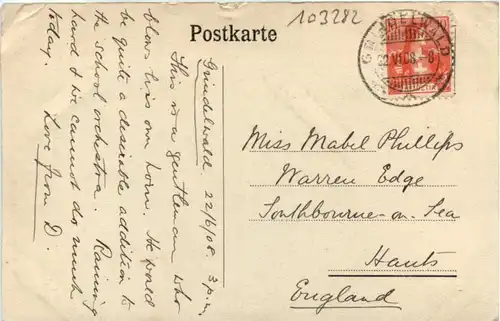 103282
Postkarte
GRINDELWALD
22.VI.08.-8
Grindelwald 22/6/08. 3 p.m.
This is a gentleman who
blows his own horn. He would
be quite a desirable addition to
the school orchestra. Raining
hard & we cannot do much
today. Love from D.
Miss Mabel Phillips
Warren Edge
Southbourne-on-Sea
Hants
England